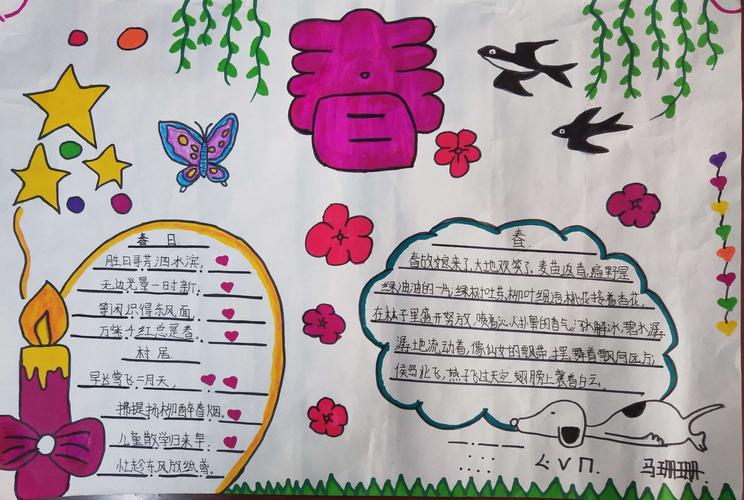 春
春 日
胜日寻芳泗水滨,
无边光景一时新.
等闲识得东风面,
万紫千红总是春.
村 居
草长莺飞二月天,
拂堤杨柳醉春烟.
儿童散学归来早,
忙趁东风放纸鸢.
春
春姑娘来了,大地欢笑了,麦苗返青,遍野是
绿油油的一片,绿树吐芽,柳叶细,桃花接着杏花,
在林子里盛开努放,喷着沁人肺的香气,解冰,碧水潺
潺地流动着,像仙女的飘带,摆舞着飘向远方,
候鸟北飞,燕子飞过天空,翅膀上裹着白云.
马珊珊.